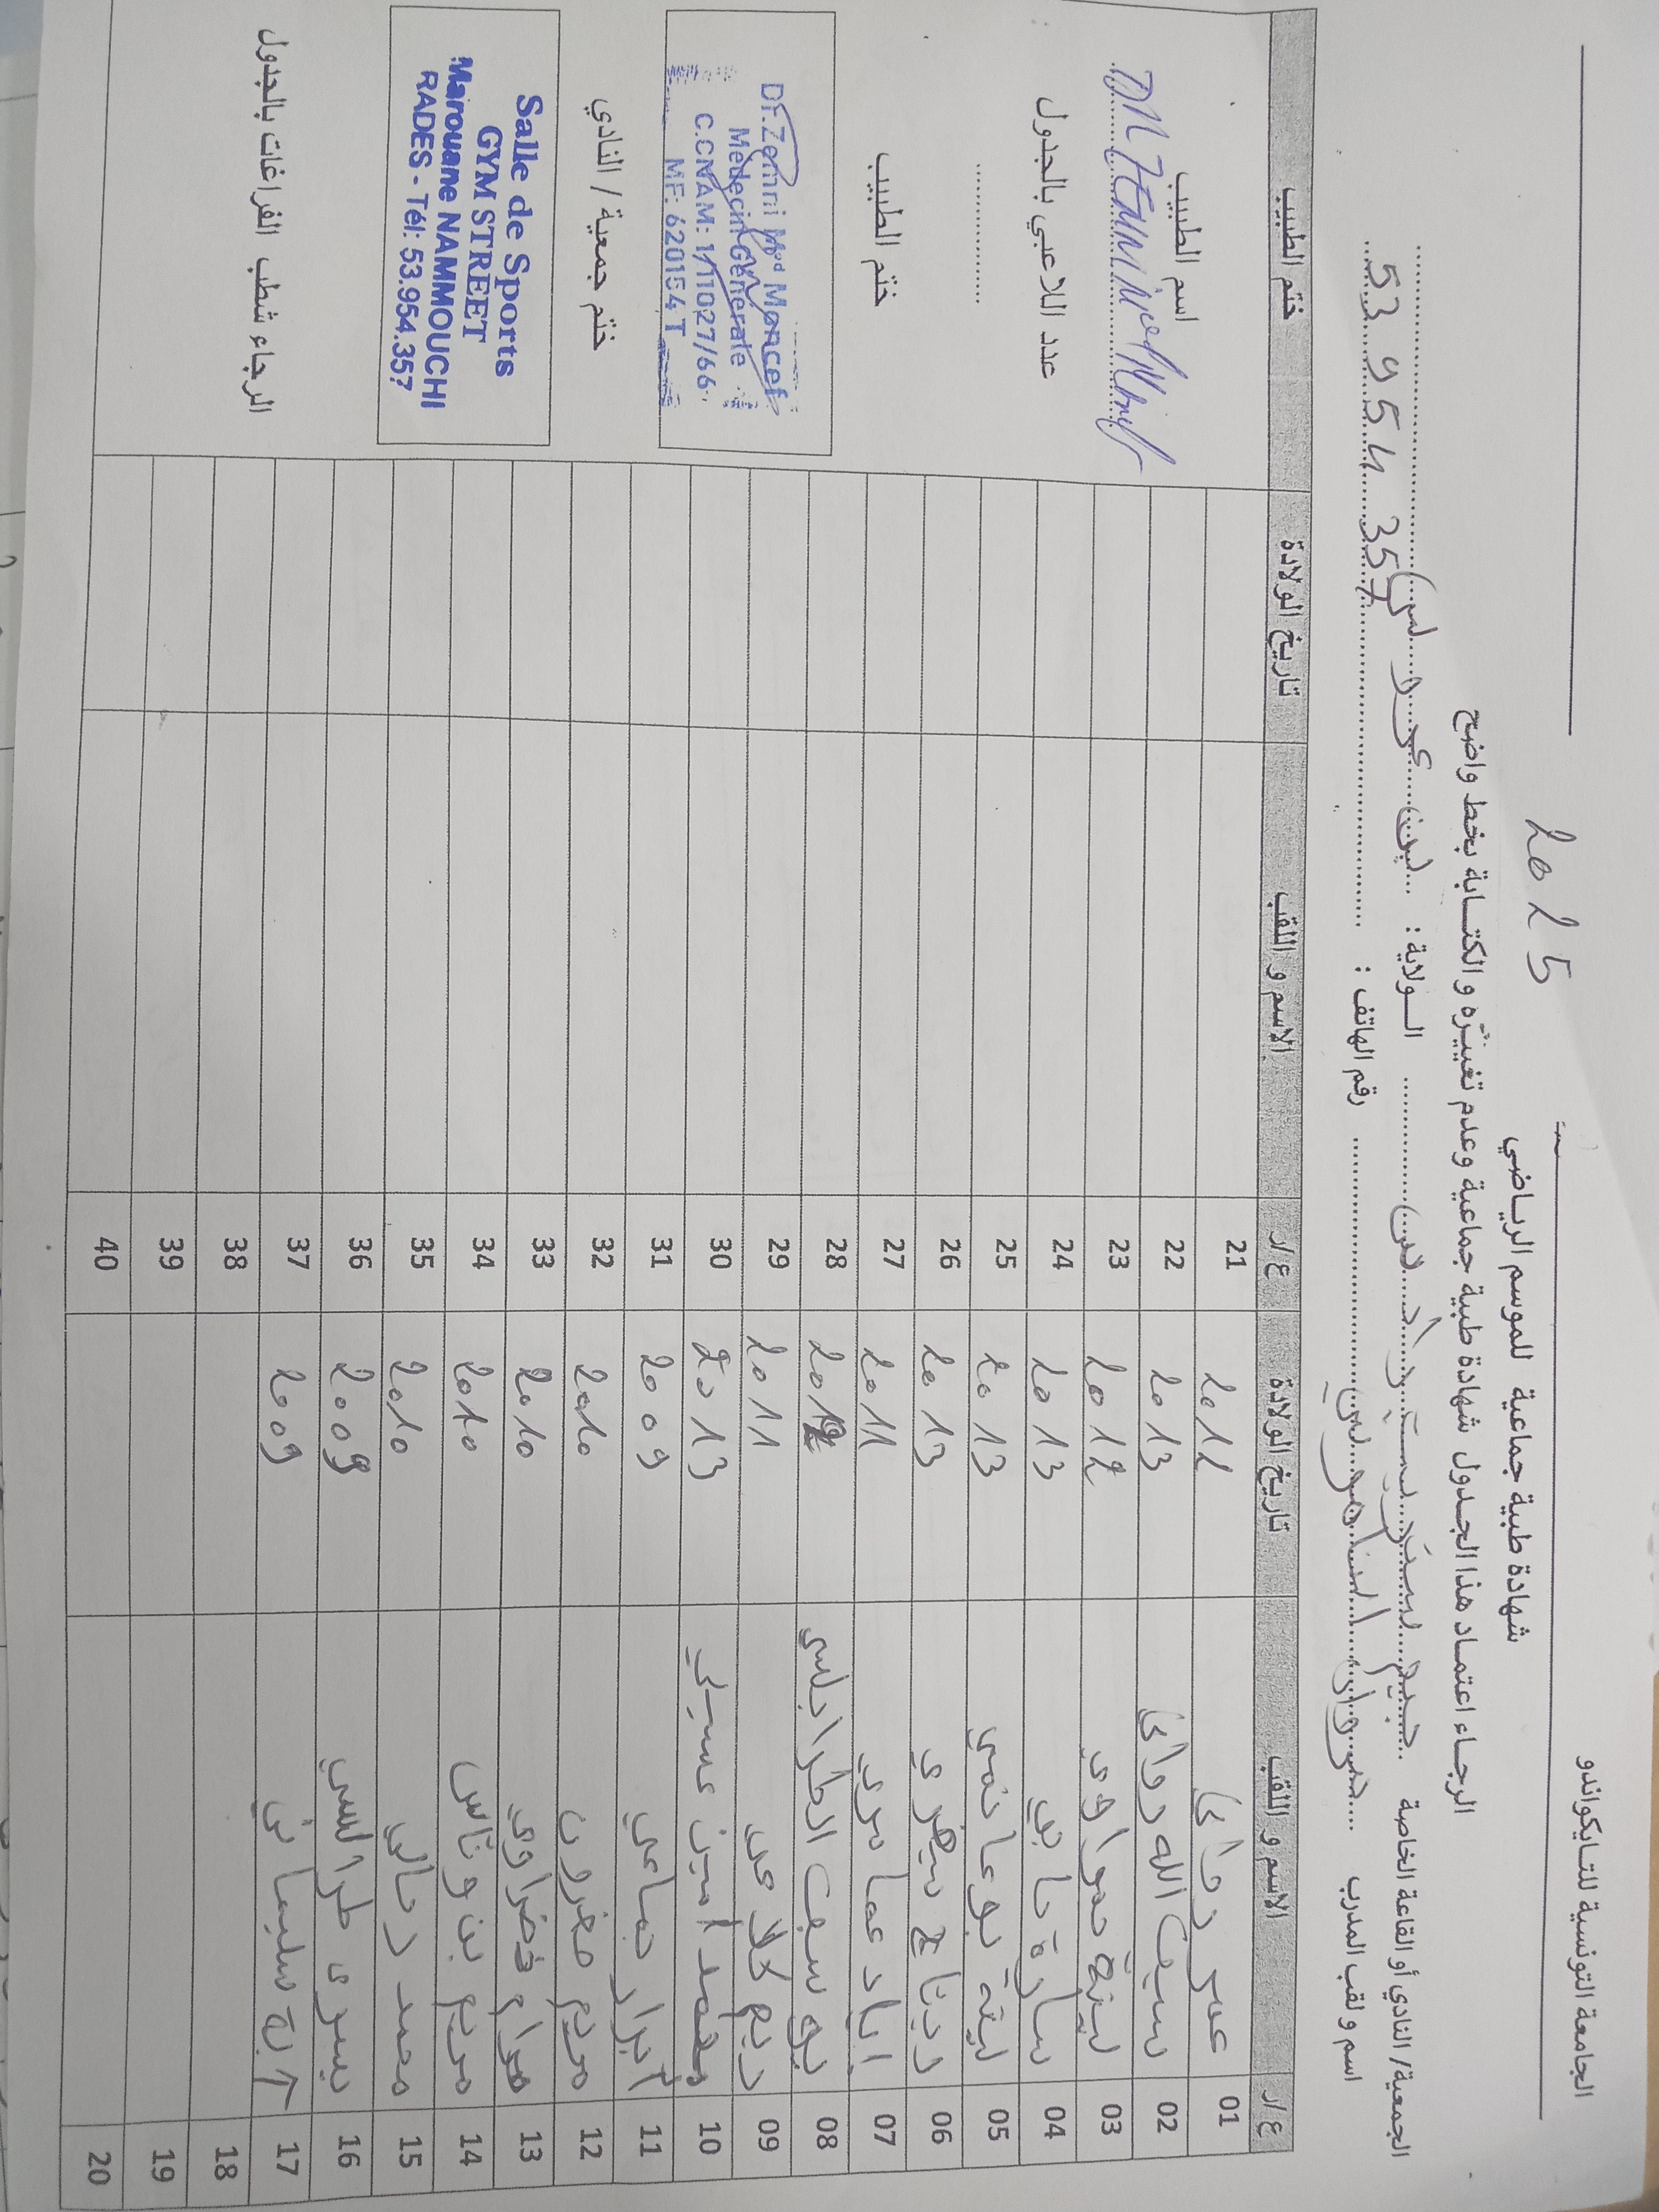 الجامعة التونسية للتايكواندو
شهادة طبية جماعية للموسم الرياضي 2025
الرجاء اعتماد هذا الجدول شهادة طبية جماعية وعدم تغييره و الكتابة بخط واضح
الجمعية/ النادي أو القاعة الخاصة جيم ستريت رادس الولاية: بن عروس
اسم و لقب المدرب مروان النموشي رقم الهاتف : 53 954 357
ع/ر الاسم و اللقب تاريخ الولادة ع/ر الاسم و اللقب تاريخ الولادة ختم الطبيب
01 عمر 2012 21
02 سيف الله 2013 22
03 لينة حمواوي 2012 23
04 سارة 2013 24
05 لينة بوعا 2013 25
06 2013 26
07 اياد عمامري 2011 27
08 يوسف الطرابلسي 2012 28
09 ريم 2011 29
10 محمد امين عسيلي 2013 30
11 أبرار جماعي 2009 31
12 مريم مغرون 2010 32
13 مرام خضراوي 2010 33
14 مريم بن وناس 2010 34
15 محمد رحالي 2010 35
16 يسرى طرابلسي 2009 36
17 أريج سليماني 2009 37
18 38
19 39
20 40
اسم الطبيب
Dr Zemni Med Moncef
عدد اللاعبي بالجدول
ختم الطبيب
Dr.Zemni Med Moncef
Médecin Générale
C.CNAM: 1/11027/66
MF: 620154T
ختم جمعية / النادي
Salle de Sports
GYM STREET
Marouane NAMMOUCHI
RADES - Tél: 53.954.357
الرجاء شطب الفراغات بالجدول